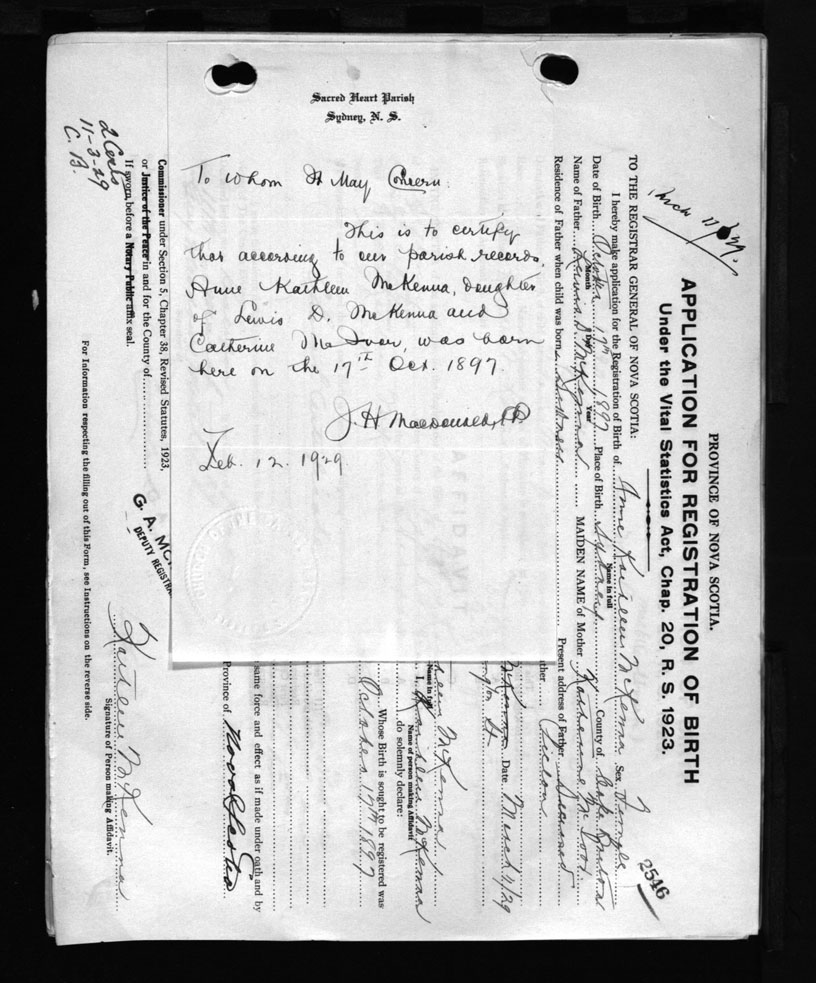 Sacred Heart Parish
Sydney, N. S.
To Whom It May Concern:
This is to certify
that according to our parish records,
Anne Kathleen McKenna, daughter
of Lewis D. McKenna and
Catherine McIvor, was born
here on the 17th Oct. 1897.
J. H. Macdonald, P.P.
Feb. 12. 1929.
PROVINCE OF NOVA SCOTIA.
APPLICATION FOR REGISTRATION OF BIRTH
Under the Vital Statistics Act, Chap. 20, R. S. 1923.
2546
TO THE REGISTRAR GENERAL OF NOVA SCOTIA:
I hereby make application for the Registration of Birth of Anne Kathleen McKenna Sex Female
Name in full
Date of Birth October 17th 1897 Place of Birth Sydney County of Cape Breton
Month Day Year
Name of Father Lewis D. McKenna MAIDEN NAME of Mother Katherine
Residence of Father when child was born Present address of Father Deceased
McKenna Date March 11/29
Kathleen McKenna
Name in full
I, Kathleen McKenna
Name of person making Affidavit
do solemnly declare:
Whose Birth is sought to be registered was
October 17th 1897
same force and effect as if made under oath and by
Province of Nova Scotia
G. A. MC
DEPUTY REGISTRA
Kathleen McKenna
Signature of Person making Affidavit.
Commissioner under Section 5, Chapter 38, Revised Statutes, 1923,
or Justice of the Peace in and for the County of
If sworn before a Notary Public affix seal.
For Information respecting the filling out of this Form, see Instructions on the reverse side.
2 Certs
11-3-29
C. B.